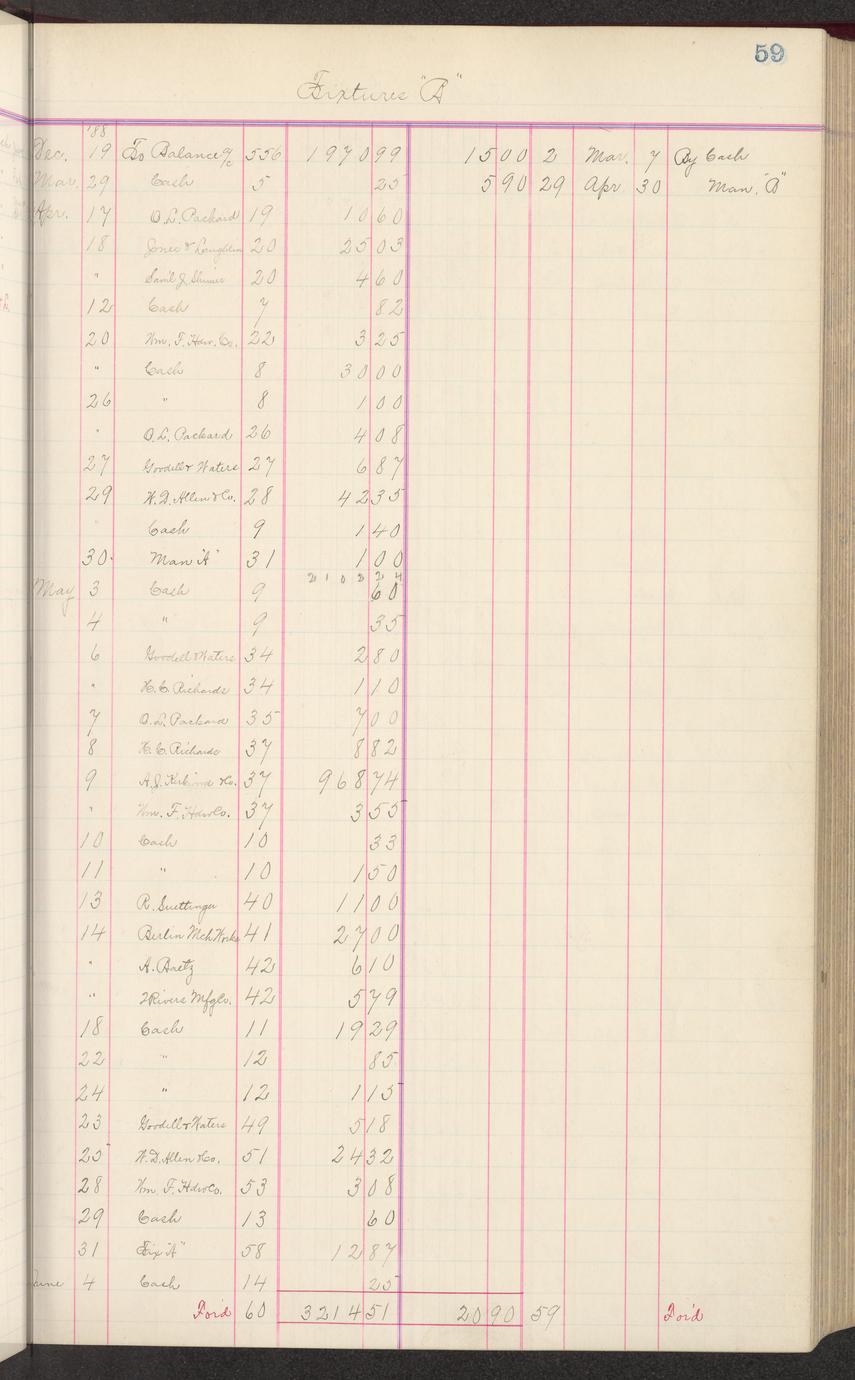 59
Fixtures "B"
'88
Dec. 19 To Balance a/c 556 1970 99 15 00 2 Mar. 7 By Cash
Mar. 29 Cash 5 25 5 90 29 Apr 30 Man. "B"
Apr. 17 O.L. Packard 19 10 60
18 Jones & Laughlin 20 25 03
" Saml J. 20 4 60
12 Cash 7 82
20 Wm. F. Hdw. Co. 22 3 25
" Cash 8 30 00
26 " 8 1 00
" O.L. Packard 26 4 08
27 Goodell & Waters 27 6 87
29 W.D. Allen & Co. 28 42 35
" Cash 9 1 40
30 Man "A" 31 1 00
2102 24
May 3 Cash 9 60
4 " 9 35
6 Goodell & Waters 34 2 80
" H.C. Richards 34 1 10
7 O.L. Packard 35 7 00
8 H.C. Richards 37 8 82
9 A.J. & Co. 37 968 74
" Wm. F. Hdw Co. 37 3 55
10 Cash 10 33
11 " 10 1 50
13 R. Suettinger 40 11 00
14 Berlin Mch Works 41 27 00
" A. Baetz 42 6 10
" 2 Rivers Mfg Co. 42 5 79
18 Cash 11 19 29
22 " 12 85
24 " 12 1 15
23 Goodell & Waters 49 5 18
25 W.D. Allen & Co. 51 24 32
28 Wm. F. Hdw Co. 53 3 08
29 Cash 13 60
31 Fix "A" 58 12 87
June 4 Cash 14 25
For'd 60 3214 51 20 90 59 For'd